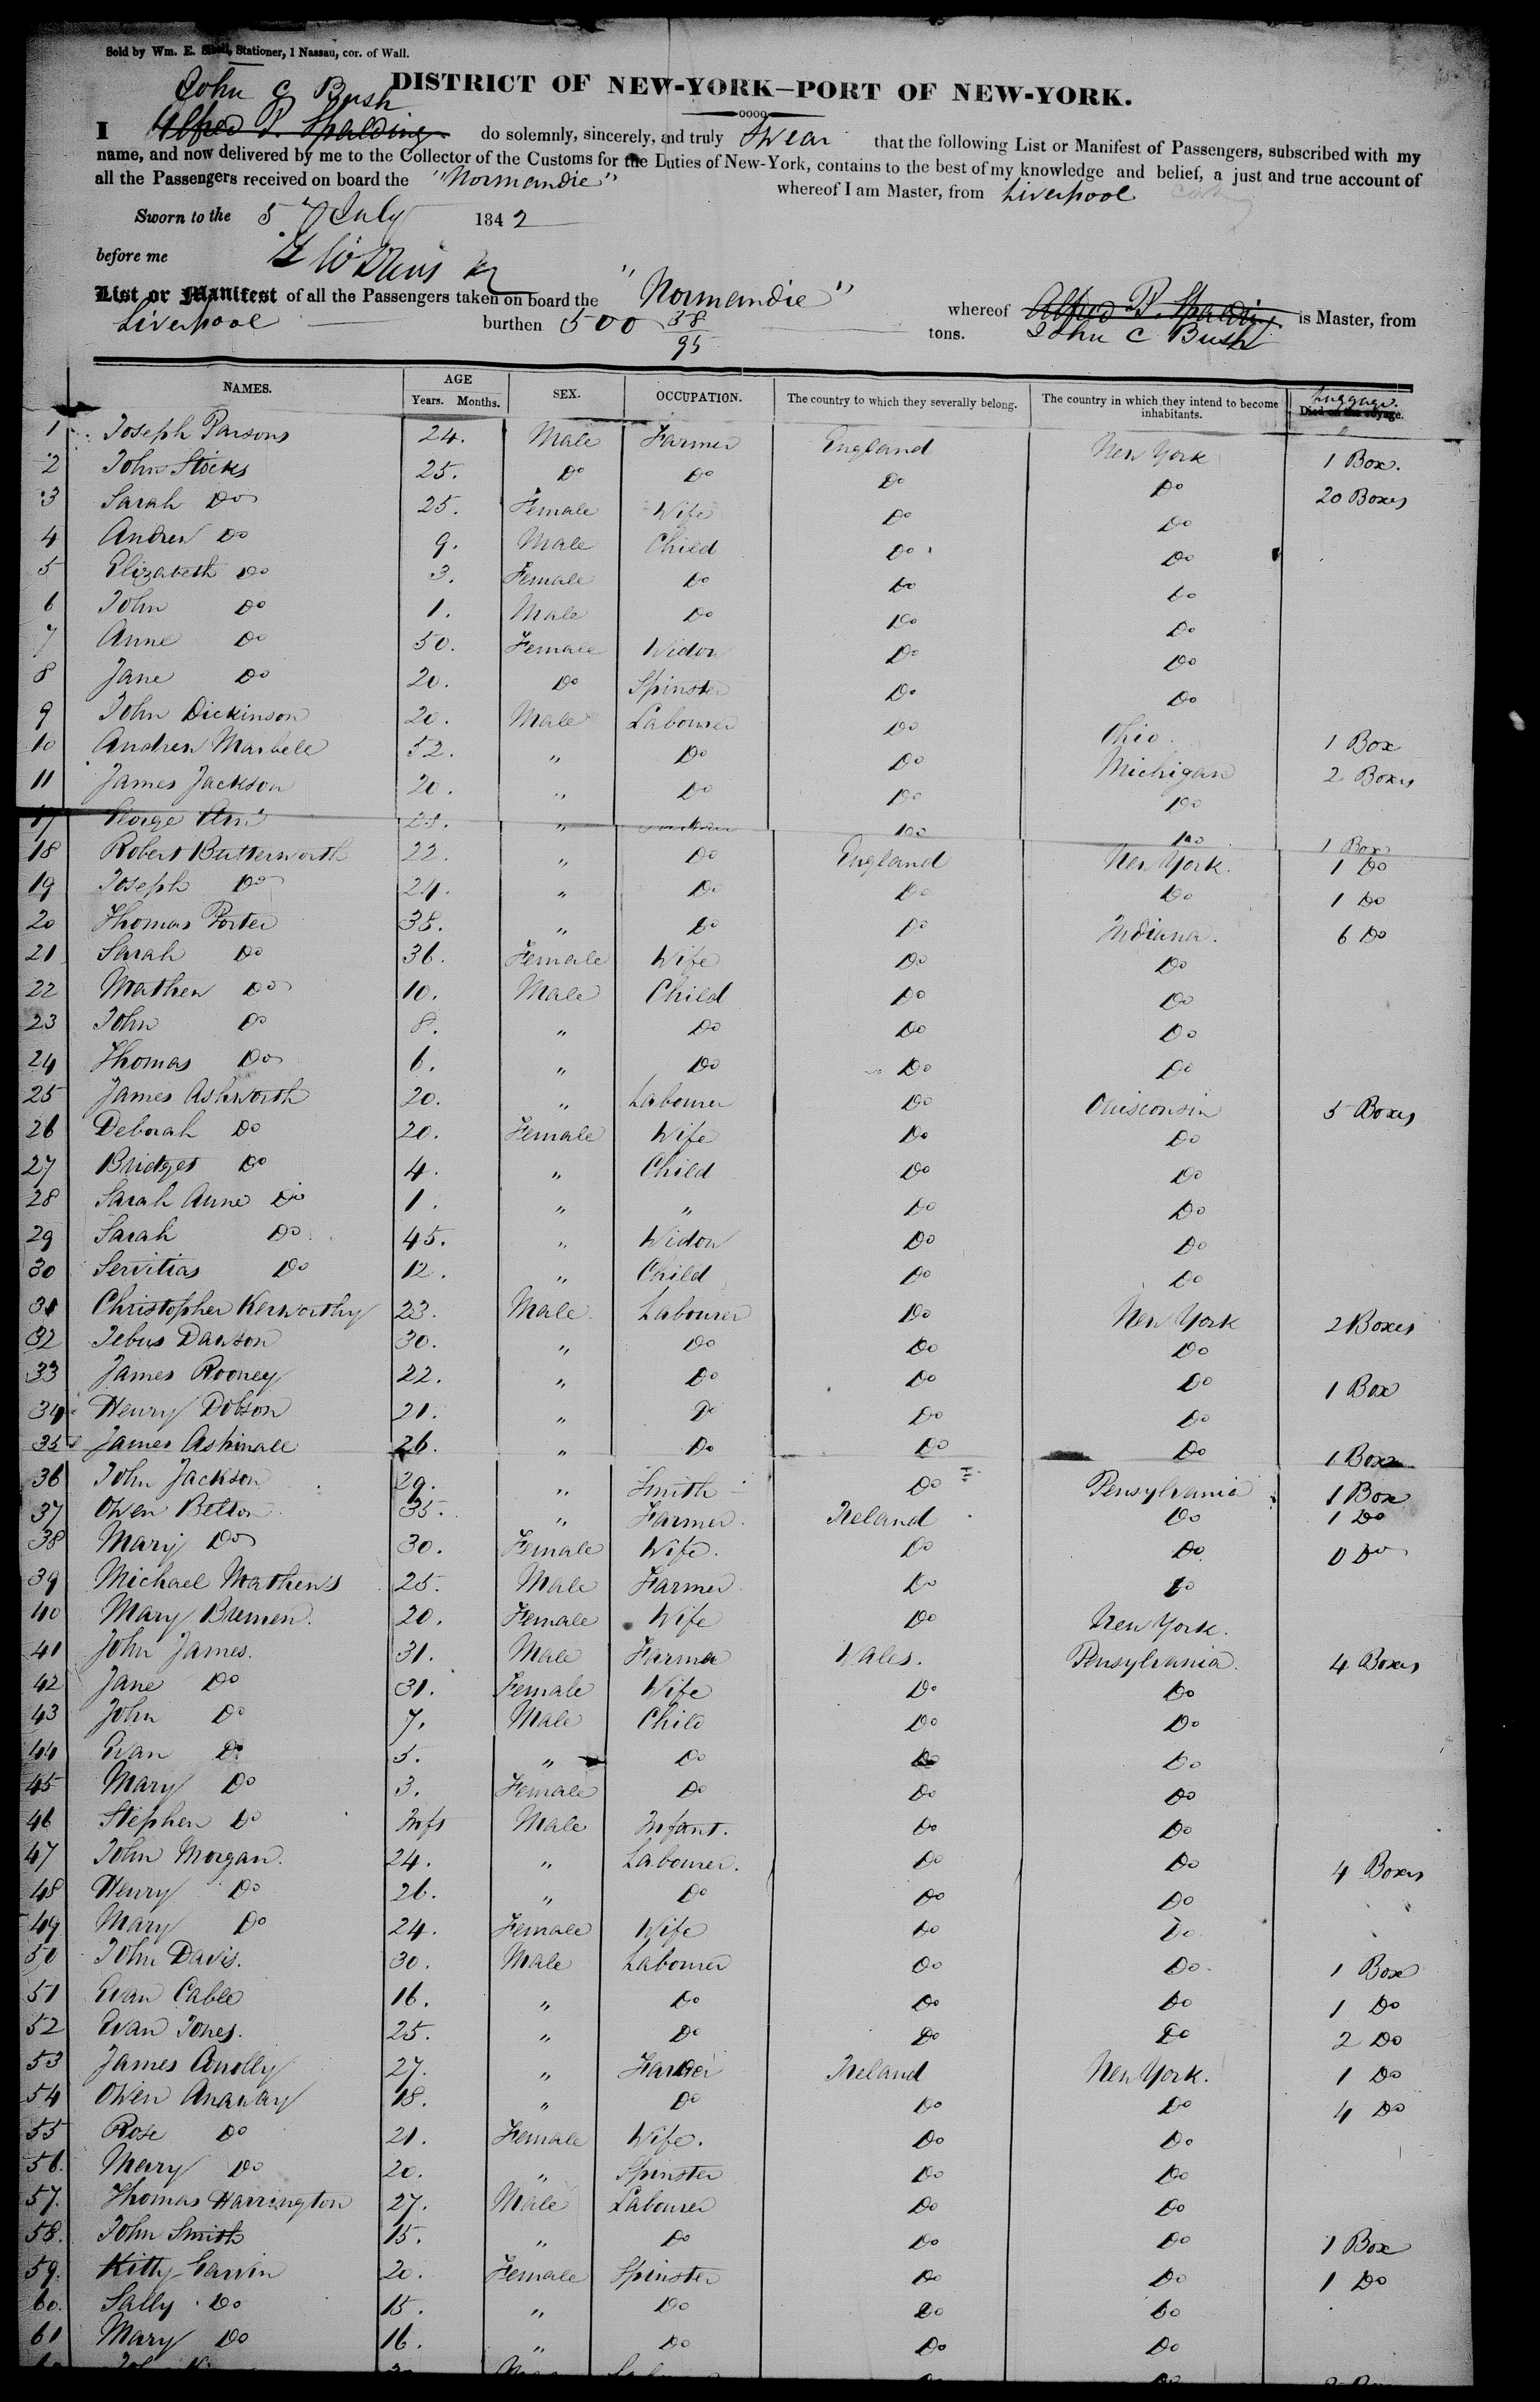 Sold by Wm. E. Sibell, Stationer, 1 Nassau, cor. of Wall.
DISTRICT OF NEW-YORK—PORT OF NEW-YORK.
John C Bush
I Alfred P. Spalding do solemnly, sincerely, and truly Swear that the following List or Manifest of Passengers, subscribed with my
name, and now delivered by me to the Collector of the Customs for the Duties of New-York, contains to the best of my knowledge and belief, a just and true account of
all the Passengers received on board the "Normandie" whereof I am Master, from Liverpool
Sworn to the 5 July 1842
before me
List or Manifest of all the Passengers taken on board the "Normandie" whereof Alfred P. Spalding is Master, from
Liverpool burthen 500 38/95 tons. John C Bush
NAMES. AGE Years. Months. SEX. OCCUPATION. The country to which they severally belong. The country in which they intend to become inhabitants. Luggage. Died on the voyage.
1 Joseph Parsons 24. Male Farmer England New York 1 Box.
2 John Stocks 25. Do Do Do Do 20 Boxes
3 Sarah Do 25. Female Wife Do Do
4 Andrew Do 9. Male Child Do Do
5 Elizabeth Do 3. Female Do Do Do
6 John Do 1. Male Do Do Do
7 Anne Do 50. Female Widow Do Do
8 Jane Do 20. Do Spinster Do Do
9 John Dickinson 20. Male Labourer Do Ohio 1 Box
10 Andrew Marbele 52. " Do Do Michigan 2 Boxes
11 James Jackson 20. " Do Do Do
17 George " Do Do 1 Box
18 Robert Butterworth 22. " Do England New York. 1 Do
19 Joseph Do 24. " Do Do Do 1 Do
20 Thomas Porter 38. " Do Do Indiana. 6 Do
21 Sarah Do 36. Female Wife Do Do
22 Mathew Do 10. Male Child Do Do
23 John Do 8. " Do Do Do
24 Thomas Do 6. " Do Do Do
25 James Ashworth 20. " Labourer Do Ouisconsin 5 Boxes
26 Deborah Do 20. Female Wife Do Do
27 Bridget Do 4. " Child Do Do
28 Sarah Anne Do 1. " " Do Do
29 Sarah Do 45. " Widow Do Do
30 Servitias Do 12. " Child Do Do
31 Christopher Kerworthy 23. Male Labourer Do New York 2 Boxes
32 Jebus Dawson 30. " Do Do Do
33 James Rooney 22. " Do Do Do 1 Box
34 Henry Dobson 21. " Do Do Do
35 James Ashinall 26. " Do Do Do 1 Box
36 John Jackson 29. " Smith Do Pensylvania 1 Box
37 Owen Belton 35. " Farmer. Ireland Do 1 Do
38 Mary Do 30. Female Wife. Do Do 0 Do
39 Michael Mathews 25. Male Farmer Do Do
40 Mary Bremen. 20. Female Wife Do New York.
41 John James. 31. Male Farmer Wales. Pensylvania. 4 Boxes
42 Jane Do 31. Female Wife Do Do
43 John Do 7. Male Child Do Do
44 Evan Do 5. " Do Do Do
45 Mary Do 3. Female Do Do Do
46 Stephen Do Inft Male Infant. Do Do
47 John Morgan. 24. " Labourer. Do Do 4 Boxes
48 Henry Do 26. " Do Do Do
49 Mary Do 24. Female Wife Do Do
50 John Davis. 30. Male Labourer Do Do 1 Box
51 Evan Cable 16. " Do Do Do 1 Do
52 Evan Jones. 25. " Do Do Do 2 Do
53 James Conolly 27. " Farmer Ireland New York. 1 Do
54 Owen Anaway 18. " Do Do Do 4 Do
55 Rose Do 21. Female Wife. Do Do
56. Mary Do 20. " Spinster Do Do
57. Thomas Harrington 27. Male Labourer Do Do
58. John Smith 15. " Do Do Do 1 Box
59. Kitty Garvin 20. Female Spinster Do Do 1 Do
60. Sally Do 15. " Do Do Do
61 Mary Do 16. " Do Do Do